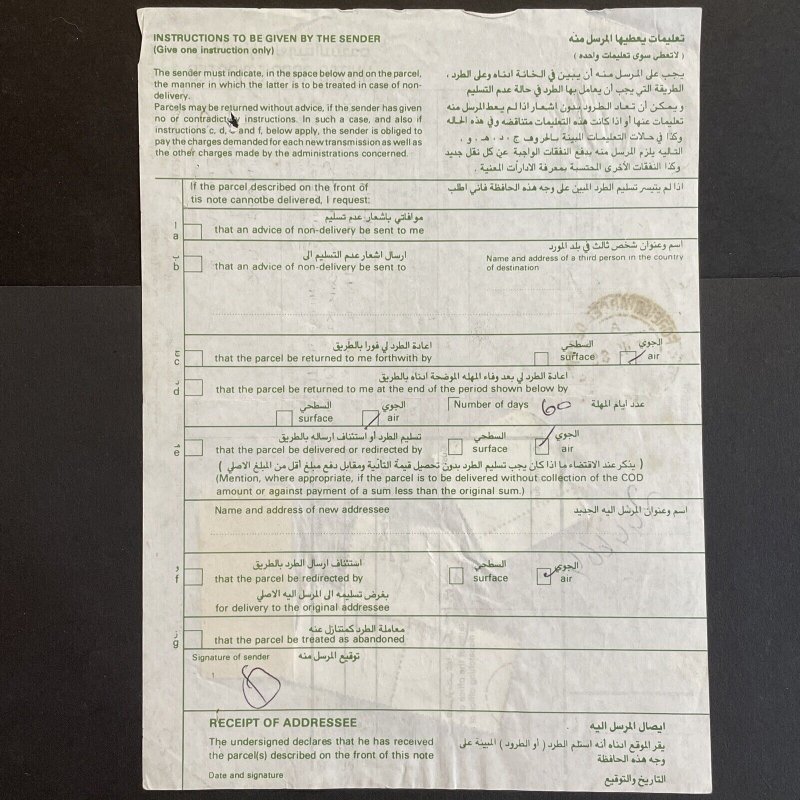 INSTRUCTIONS TO BE GIVEN BY THE SENDER
(Give one instruction only)
تعليمات يعطيها المرسل منه
( لا تعطى سوى تعليمات واحده )
The sender must indicate, in the space below and on the parcel,
the manner in which the latter is to be treated in case of non-
delivery.
Parcels may be returned without advice, if the sender has given
no or contradictory instructions. In such a case, and also if
instructions c, d, e and f, below apply, the sender is obliged to
pay the charges demanded for each new transmission as well as
the other charges made by the administrations concerned.
يجب على المرسل منه أن يبين في الخانة ادناه وعلى الطرد ،
الطريقة التي يجب أن يعامل بها الطرد في حالة عدم التسليم
ويمكن أن تعاد الطرود بدون إشعار اذا لم يعط المرسل منه
تعليمات عنها أو اذا كانت هذه التعليمات متناقضه وفي هذه الحاله
وكذا في حالات التعليمات المبينة بالحروف ج ، د ، هـ ، و ،
التاليه يلزم المرسل منه بدفع النفقات الواجبة عن كل نقل جديد
وكذا النفقات الأخرى المحتسبة بمعرفة الادارات المعنية .
If the parcel described on the front of
tis note cannotbe delivered, I request:
اذا لم يتيسر تسليم الطرد المبين على وجه هذه الحافظة فاني اطلب
أ
a
موافاتي باشعار عدم تسليم
that an advice of non-delivery be sent to me
ب
b
ارسال اشعار عدم التسليم الى
that an advice of non-delivery be sent to
اسم وعنوان شخص ثالث في بلد المورد
Name and address of a third person in the country
of destination
ج
c
اعادة الطرد لي فورا بالطريق
that the parcel be returned to me forthwith by
السطحي
surface
الجوي
air
د
d
اعادة الطرد لي بعد وفاء المهله الموضحة ادناه بالطريق
that the parcel be returned to me at the end of the period shown below by
السطحي
surface
الجوي
air
Number of days 60 عدد ايام المهلة
هـ
e
تسليم الطرد أو استئناف ارساله بالطريق
that the parcel be delivered or redirected by
السطحي
surface
الجوي
air
( يذكر عند الاقتضاء ما اذا كان يجب تسليم الطرد بدون تحصيل قيمة التأدية ومقابل دفع مبلغ أقل من المبلغ الاصلي )
(Mention, where appropriate, if the parcel is to be delivered without collection of the COD
amount or against payment of a sum less than the original sum.)
Name and address of new addressee
اسم وعنوان المرسل اليه الجديد
و
f
استئناف ارسال الطرد بالطريق
that the parcel be redirected by
السطحي
surface
الجوي
air
بغرض تسليمه الى المرسل اليه الاصلي
for delivery to the original addressee
ز
g
معاملة الطرد كمتنازل عنه
that the parcel be treated as abandoned
Signature of sender
توقيع المرسل منه
RECEIPT OF ADDRESSEE
The undersigned declares that he has received
the parcel(s) described on the front of this note
Date and signature
ايصال المرسل اليه
يقر الموقع ادناه أنه استلم الطرد ( أو الطرود ) المبينة على
وجه هذه الحافظة
التاريخ والتوقيع